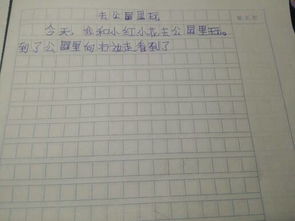 去公园里玩
今天，我和小红小花去公园里玩。
到了公园里向右边走看到了